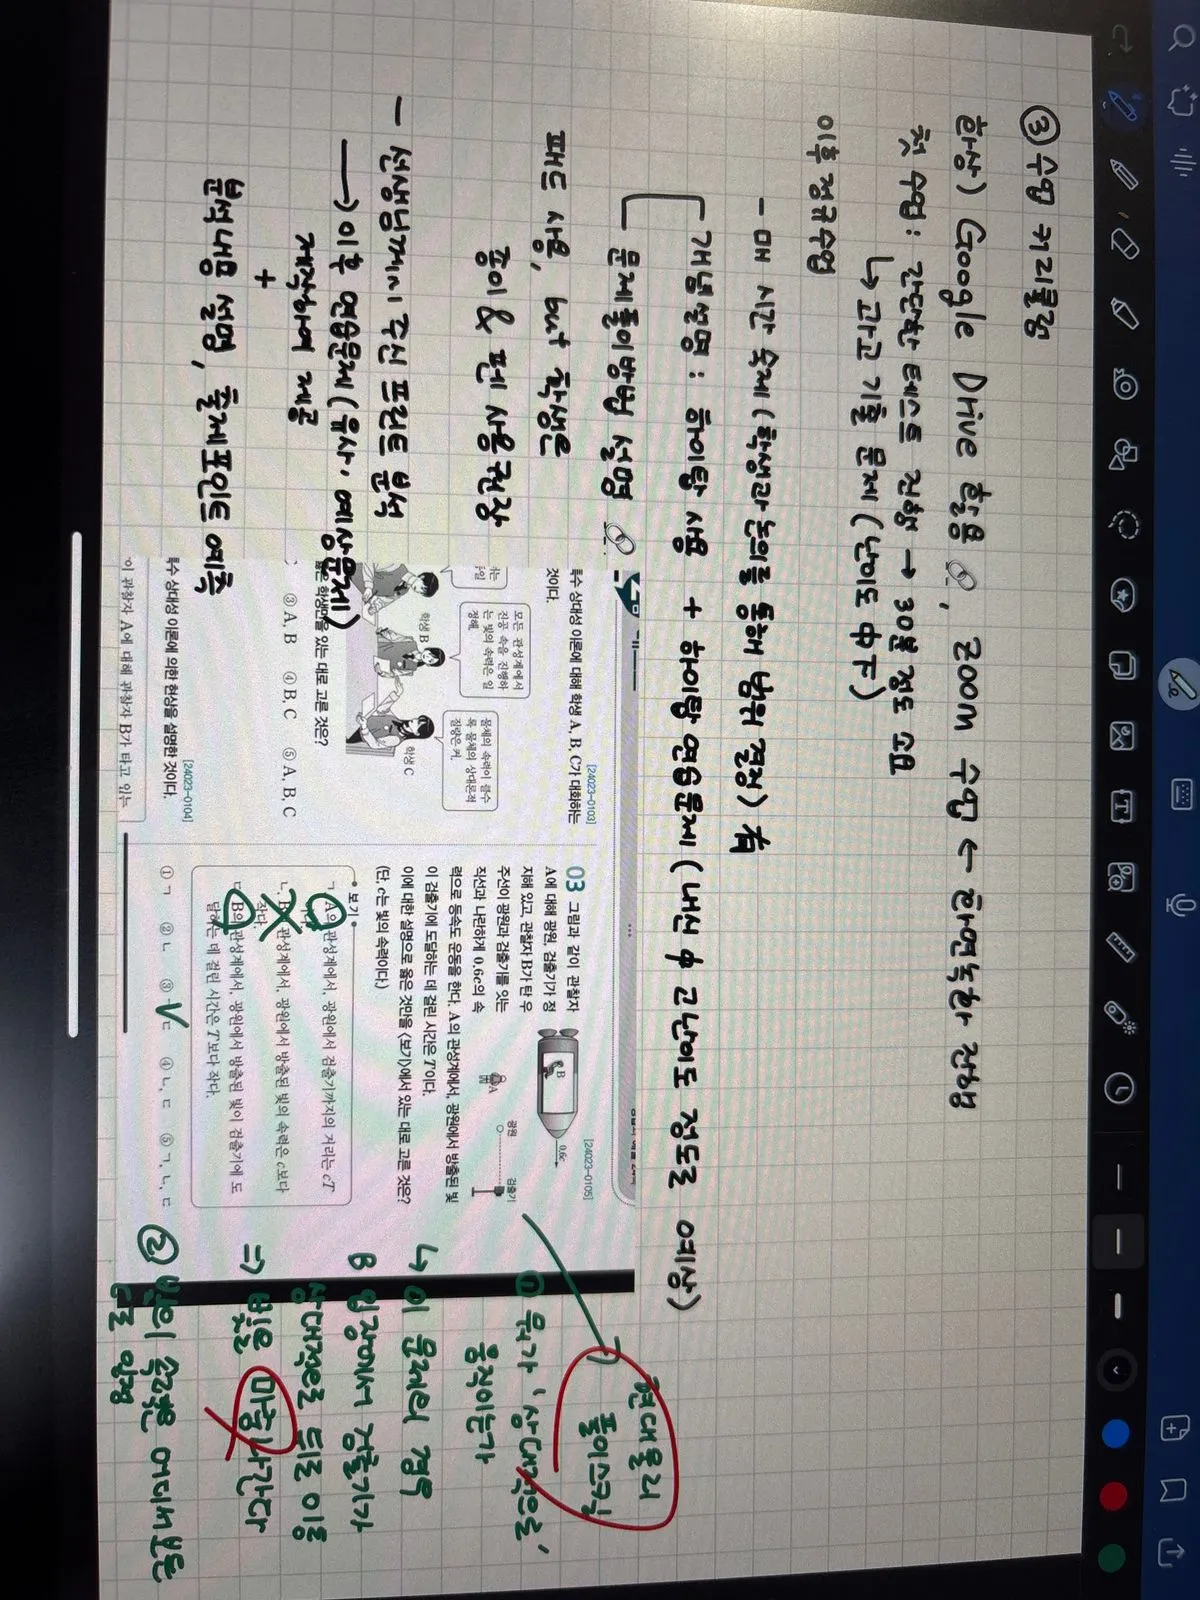 ③ 수업 커리큘럼
화상) Google Drive 활용, zoom 수업 ← 화면녹화 진행
첫 수업: 간단한 테스트 진행 → 30분 정도 소요
↳ 과고 기출 문제 (난이도 中下)
이후 정규수업
- 매 시간 숙제 (학생과 논의를 통해 범위 결정) 有
개념설명: 하이탑 사용 + 하이탑 연습문제 (내신 中 고난이도 정도로 예상)
문제풀이방법 설명
패드 사용, but 학생은
종이 & 펜 사용 권장
- 선생님께서 주신 프린트 분석
→ 이후 연습문제 (유사, 예상문제)
제작하여 제공
+
분석내용 설명, 출제포인트 예측
[24023-0103]
특수 상대성 이론에 대해 학생 A, B, C가 대화하는
것이다.
모든 관성계에서
진공 속을 진행하
는 빛의 속력은 일
정해.
물체의 속력이 클수
록 물체의 상대론적
질량은 커.
학생 B
학생 C
학생만을 있는 대로 고른 것은?
③ A, B ④ B, C ⑤ A, B, C
[24023-0104]
특수 상대성 이론에 의한 현상을 설명한 것이다.
관찰자 A에 대해 관찰자 B가 타고 있는
[24023-0105]
03 그림과 같이 관찰자
A에 대해 광원, 검출기가 정
지해 있고, 관찰자 B가 탄 우
주선이 광원과 검출기를 잇는
직선과 나란하게 0.6c의 속
력으로 등속도 운동을 한다. A의 관성계에서, 광원에서 방출된 빛
이 검출기에 도달하는 데 걸린 시간은 T이다.
B
0.6c
A
광원
검출기
이에 대한 설명으로 옳은 것만을 <보기>에서 있는 대로 고른 것은?
(단, c는 빛의 속력이다.)
보기
ㄱ. A의 관성계에서, 광원에서 검출기까지의 거리는 cT
ㄴ. B의 관성계에서, 광원에서 방출된 빛의 속력은 c보다
작다.
ㄷ. B의 관성계에서, 광원에서 방출된 빛이 검출기에 도
달하는 데 걸린 시간은 T보다 작다.
① ㄱ ② ㄴ ③ ㄷ ④ ㄴ, ㄷ ⑤ ㄱ, ㄴ, ㄷ
현대물리
풀이스킬
① 뭐가 '상대적으로'
움직이는가
↳ 이 문제의 경우
B 입장에서 검출기가
상대적으로 뒤로 이동
⇒ 빛은 마중나간다
② 빛의 속력은 어디서 보든
c로 일정